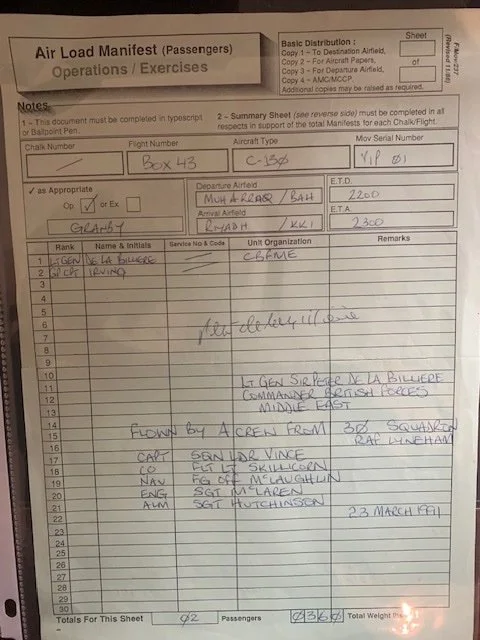 Air Load Manifest (Passengers)
Operations / Exercises
Basic Distribution :
Copy 1 – To Destination Airfield,
Copy 2 – For Aircraft Papers,
Copy 3 – For Departure Airfield,
Copy 4 – AMC/MCCP.
Additional copies may be raised as required.
Sheet
of
F/Mov/237
(Revised 11/88)
Notes
1 – This document must be completed in typescript
or Ballpoint Pen.
2 – Summary Sheet (see reverse side) must be completed in all
respects in support of the total Manifests for each Chalk/Flight.
Chalk Number
Flight Number
BOX 43
Aircraft Type
C-130
Mov Serial Number
VIP 01
✓ as Appropriate
Op ✓ or Ex
GRANBY
Departure Airfield
MUHARRAQ / BAH
Arrival Airfield
RIYADH / KKI
E.T.D.
2200
E.T.A.
2300
Rank Name & Initials Service No & Code Unit Organization Remarks
1 LT GEN DE LA BILLIERE CBFME
2 GP CPT IRVING
3
4
5
6
7
8
9
10 LT GEN SIR PETER DE LA BILLIERE
11 COMMANDER BRITISH FORCES
12 MIDDLE EAST
13
14 FLOWN BY A CREW FROM 30 SQUADRON
15 RAF LYNEHAM
16
17 CAPT SQN LDR VINCE
18 CO FLT LT SKILLICORN
19 NAV FG OFF McLAUGHLIN
20 ENG SGT McLAREN
21 ALM SGT HUTCHINSON
22 23 MARCH 1991
23
24
25
26
27
28
29
30
Totals For This Sheet 02 Passengers 0360 Total Weight